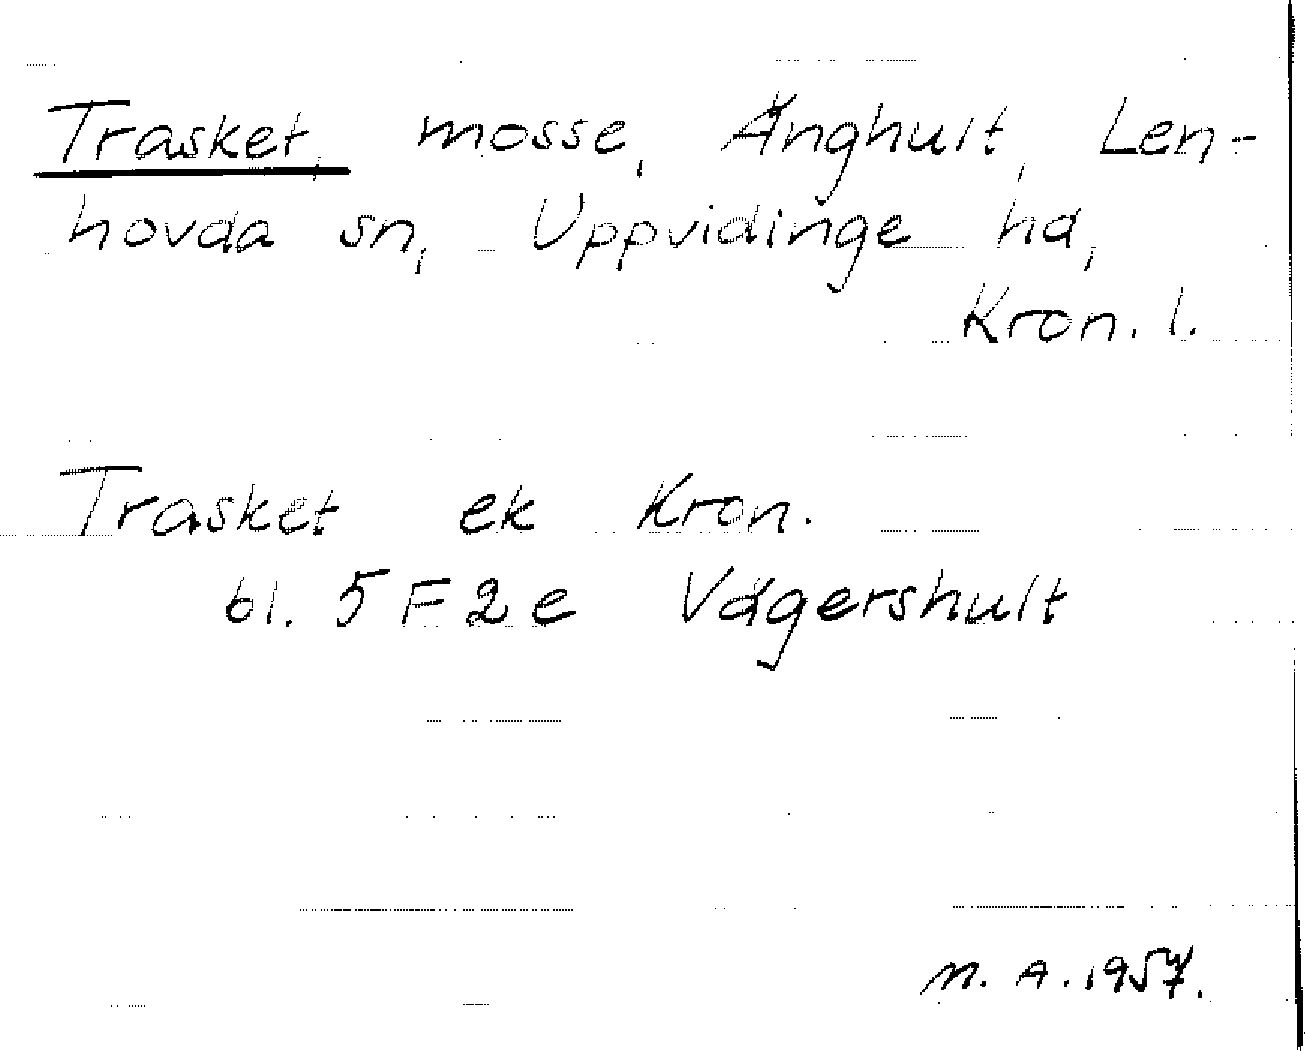 Trasket, mosse, Änghult, Len-
hovda sn, Uppvidinge hd,
Kron. l.
Trasket ek Kron.
bl. 5F2e Vägershult
M. A. 1957.